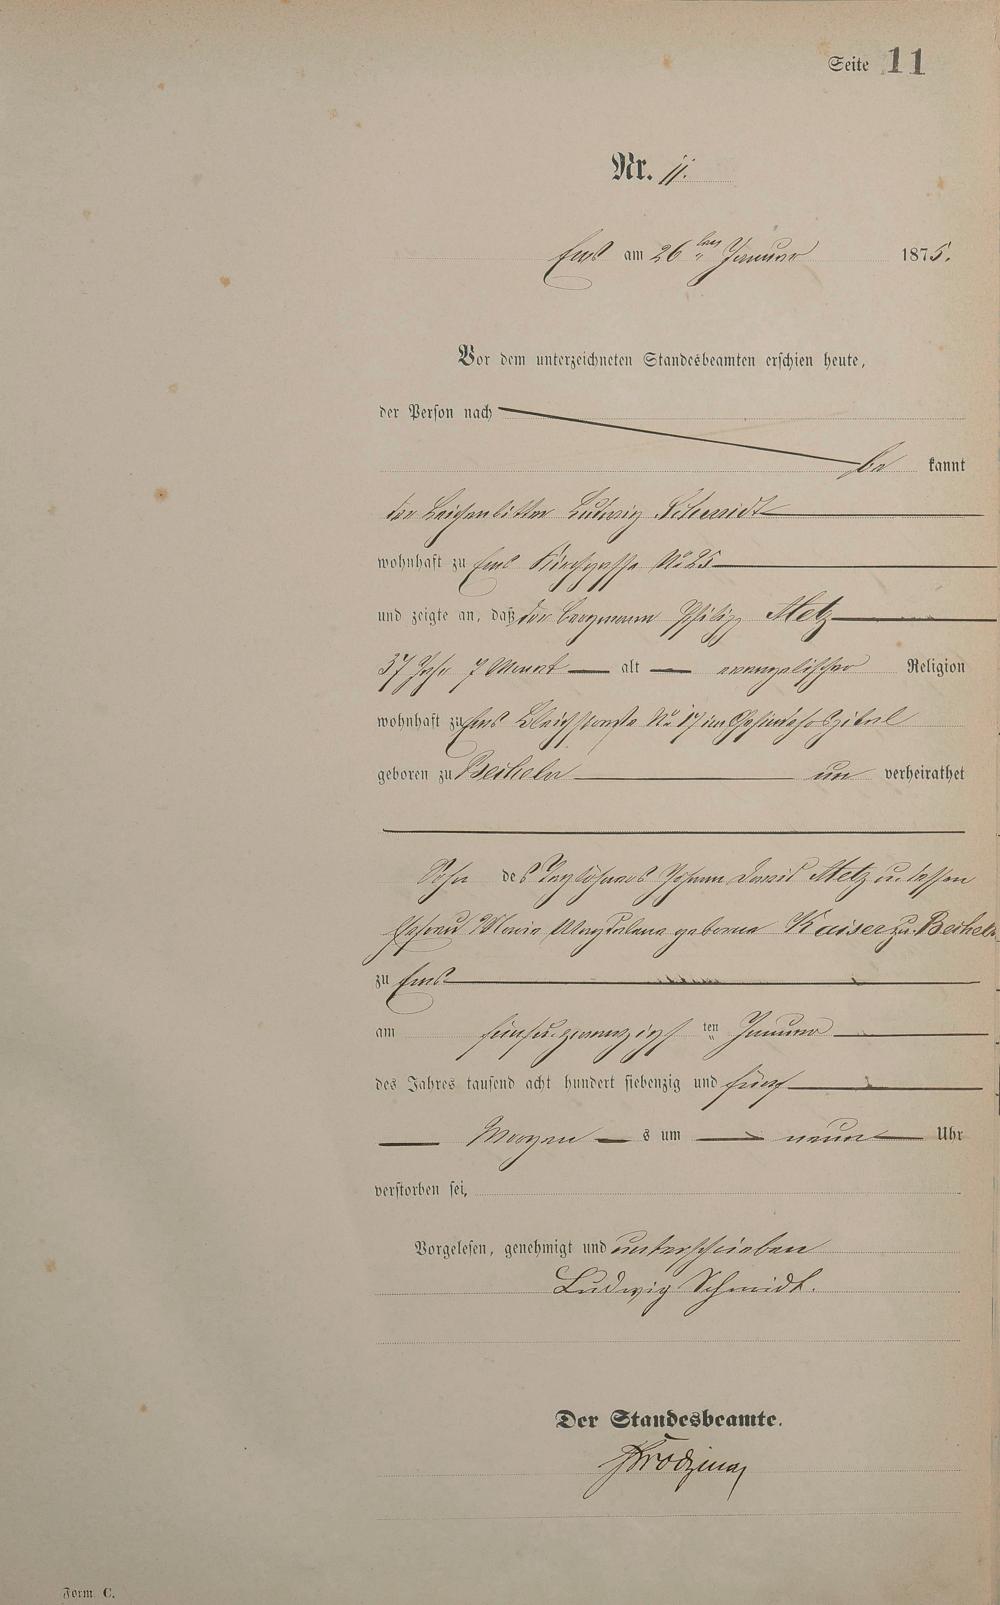 Seite 11
Nr. 11.
Ems am 26ten Januar 1875.
Vor dem unterzeichneten Standesbeamten erschien heute,
der Person nach
be kannt
der Leichenbitter Ludwig Schmidt
wohnhaft zu Ems Kirchgasse No 25
und zeigte an, daß der Bergmann Philipp Metz
37 Jahr 7 Monat alt evangelischer Religion
wohnhaft zu Ems Bleichstraße No 17 im Gesindehospital
geboren zu Becheln un verheirathet
Sohn des Taglöhners Johann David Metz u dessen
Ehefrau Maria Magdalena geborne Kaiser zu Becheln
zu Ems
am fünfu.zwanzigsten Januar
des Jahres tausend acht hundert siebenzig und fünf
Morgens um neun Uhr
verstorben sei.
Vorgelesen, genehmigt und unterschrieben
Ludwig Schmidt.
Der Standesbeamte.
Form C.